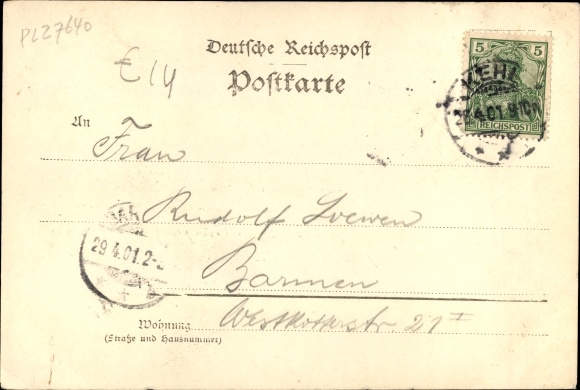 PLZ7640
Deutsche Reichspost
Postkarte
€14
5 5
REICHSPOST
KEHL
4.01.
An
Frau
Rudolf Loewen
Barmen
29.4.01.2-
Westkotterstr. 21 I
Wohnung
(Straße und Hausnummer)